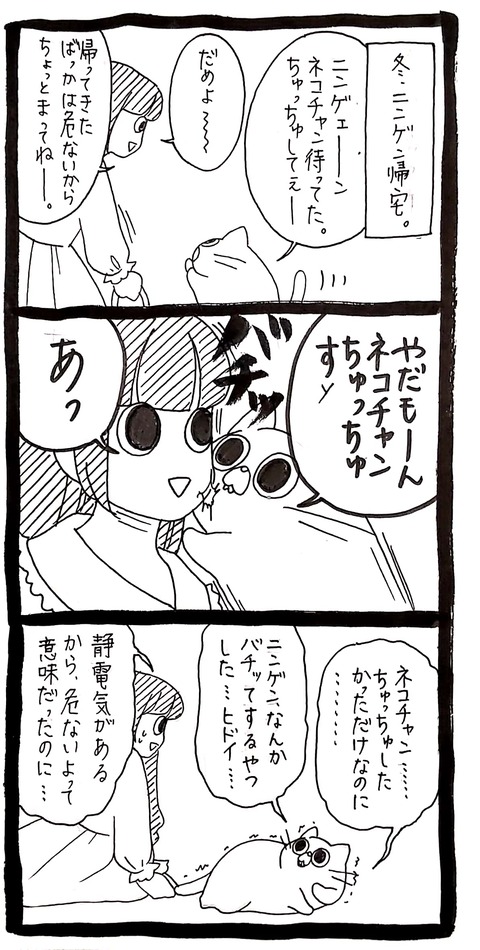 冬、ニンゲン帰宅。
ニンゲェーーン
ネコチャン待ってた。
ちゅっちゅしてぇー
だめよ～～～
帰ってきた
ばっかは危ないから
ちょっとまってねー。
やだもーん
ネコチャン
ちゅっちゅ
すy
バチッ
あっ
ネコチャン……
ちゅっちゅした
かっただけなのに
……
ニンゲン、なんか
バチッてするやつ
した…ヒドイ…
静電気がある
から、危ないよって
意味だったのに…